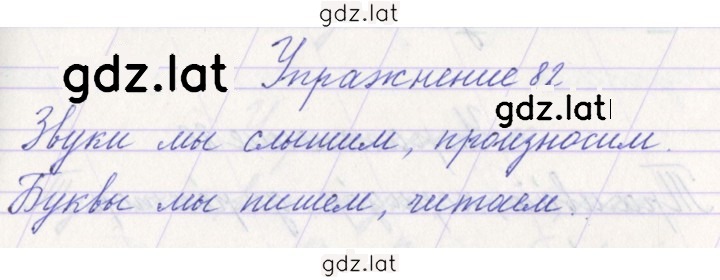 gdz.lat
gdz.lat Упражнение 82
gdz.lat
Звуки мы слышим, произносим.
Буквы мы пишем, читаем.
gdz.lat